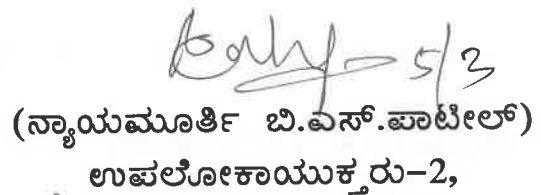 5/3
(ನ್ಯಾಯಮೂರ್ತಿ ಬಿ.ಎಸ್.ಪಾಟೀಲ್)
ಉಪಲೋಕಾಯುಕ್ತರು-2,